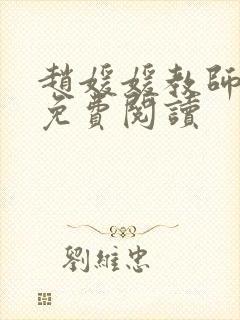 趙媛媛教師
免費閱讀
劉維忠